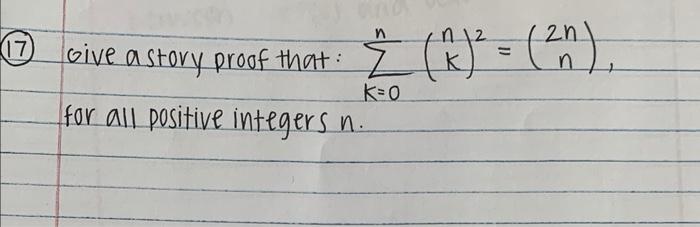 17 Give a story proof that: $\sum_{K=0}^{n} \binom{n}{k}^2 = \binom{2n}{n}$,
for all positive integers n.